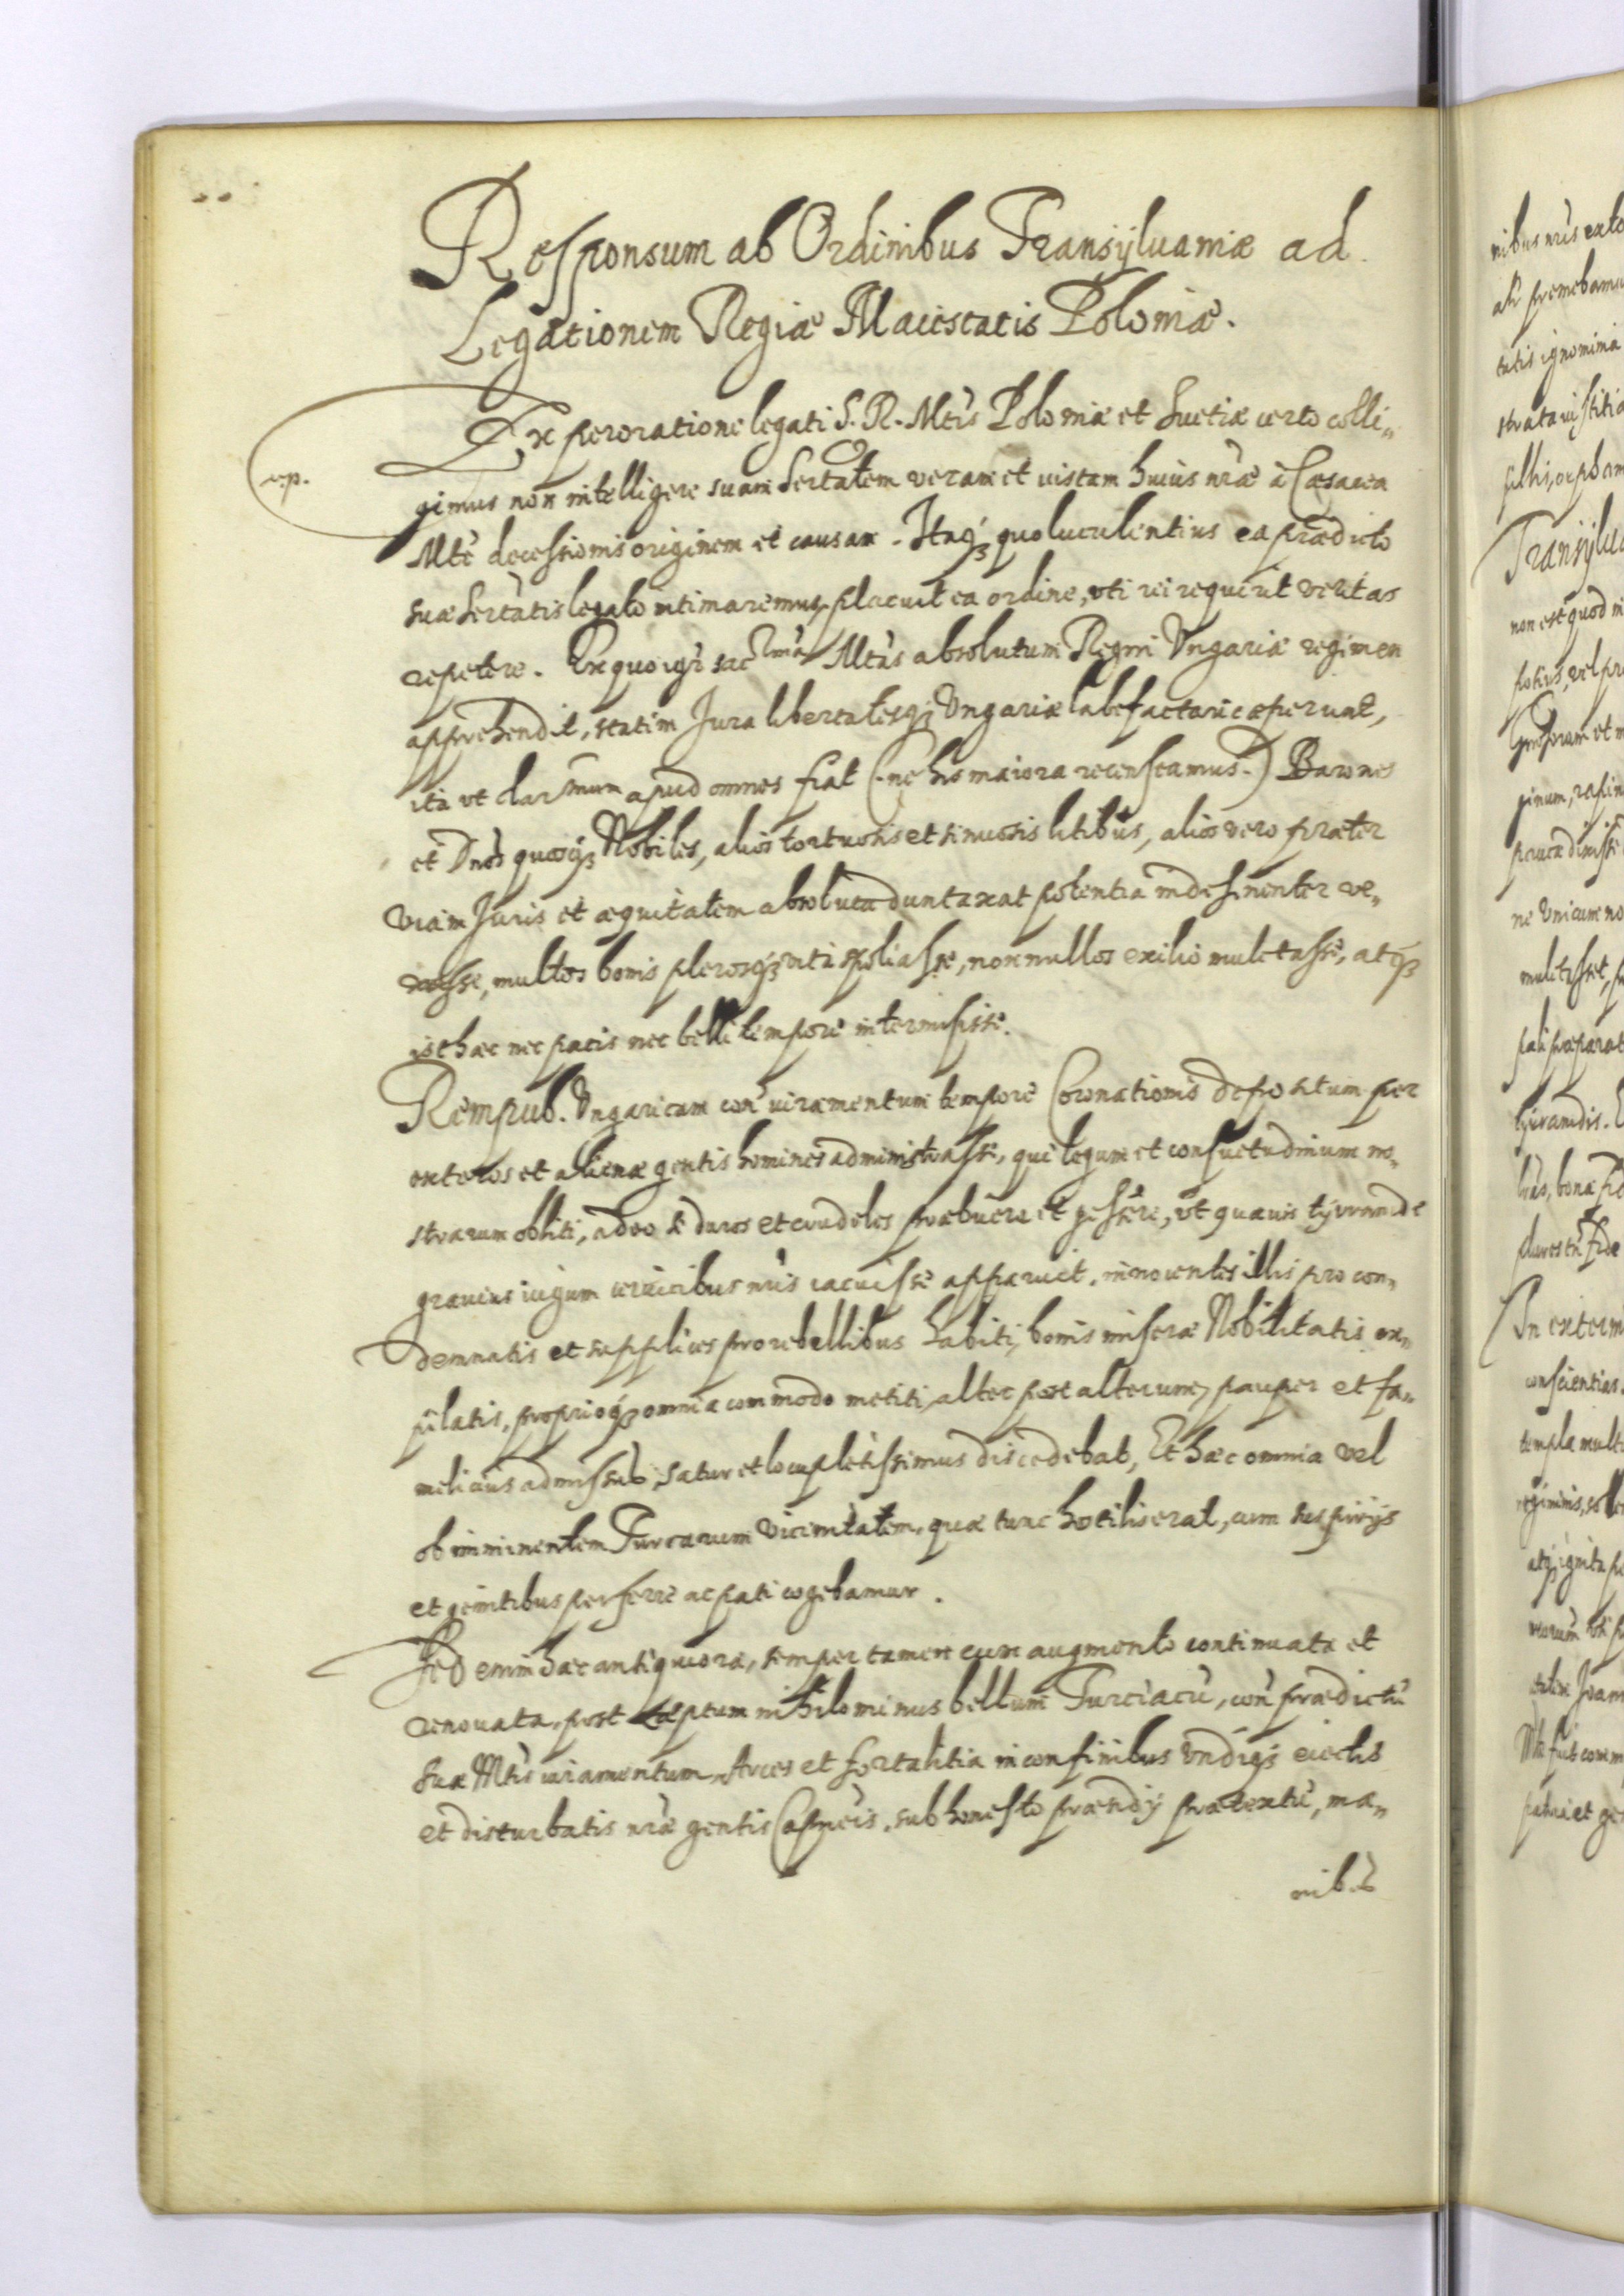 Responsum ab Ordinibus Transÿluaniæ ad
Legationem Regiæ Maiestatis Poloniæ.
Ex peroratione legati S. R. Mtis Poloniæ et Suetiæ certo colli„
gimus non intelligere suam Sertatem veram et iustam huius nræ à Cæsarea
Mte decessionis originem et causam. Itaq3 quo luculentius ea prædicto
suæ Sertatis legato intimaremus, placuit ea ordine, vti rei requirit veritas
repetere. Ex quo igr sac ma Mtas absolutum Regni Vngariæ regimen
apprehendit, statim Jura libertatesq3 Vngariæ labefactari cæperunt,
ita vt clar mum apud omnes fiat (ne his maiora recenseamus.) Barones
et Dnos quosq3 Nobiles, alios tortuosis et sinuosis litibus, alios vero præter
viam Juris et æquitatem absoluta duntaxat potentia indesinenter ve„
xasse, multos bonis plerosq3 vita spoliasse, nonnullos exilio mulctasse, atq3
isthæc nec pacis nec belli tempore intermisisse.
Rempub. Vngaricam con iuramentum tempore Coronationis depositum per
exteros et alienæ gentis homines administrasse, qui legum et consuetudinum no„
strarum obliti, adeo se duros et crudeles præbuere et gessere, vt quauis tÿrannide
grauius iugum ceruicibus nris iacuisse apparuit, innocentes illis pro con„
demnatis et supplices pro rebellibus habiti, bonis miseræ Nobilitatis ex„
pilatis, proprioq3 omnia commodo metiti, alter post alterum, pauper et fa„
melicus admissus, satur et locupletissimus discedebat, Et hæc omnia vel
ob imminentem Turcarum vicinitatem, quæ tunc hostilis erat, cum suspirÿs
et gemitibus perferre ac pati cogebamur.
Sed enim hæc antiquiora, semper tamen cum augmento continuata et
renouata, post cæptum nihilominus bellum Turciacũ, con prædictũ
Suæ Mtis iuramentum, Arces et fortalitia in confinibus Vndiq3 eiectis
et disturbatis nræ gentis Capneis, sub honesto prædÿ prætextu, ma„
nibus